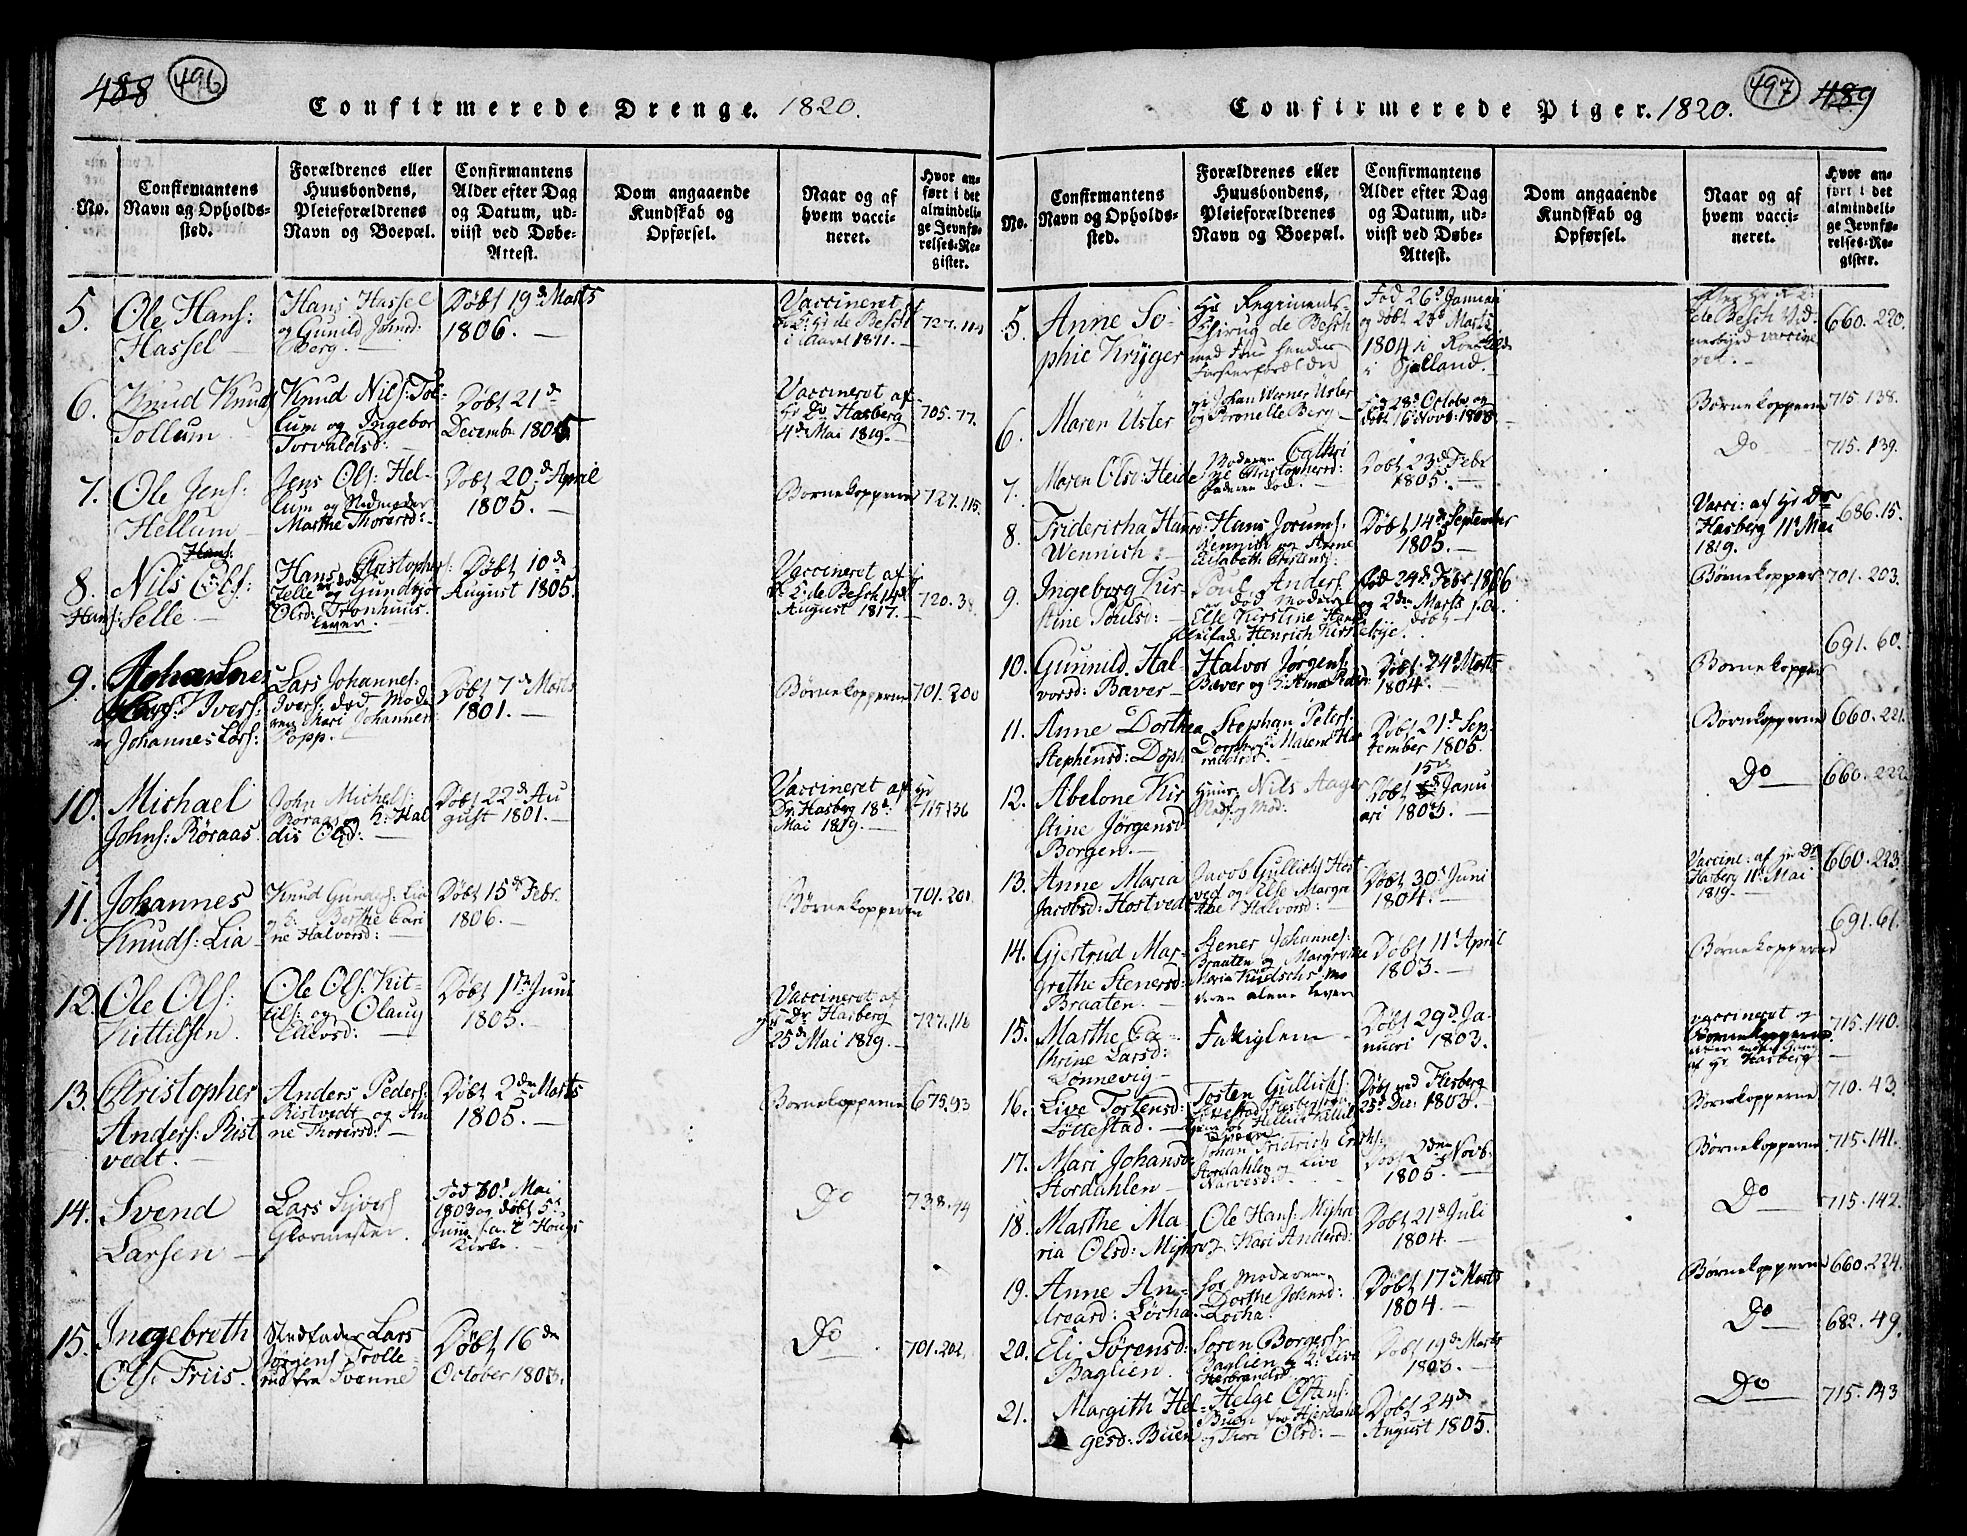 488 496
Confirmerede Drenge. 1820.
No.
Confirmantens
Navn og Opholds-
sted.
Forældrenes eller
Huusbondens,
Pleieforældrenes
Navn og Boepæl.
Confirmantens
Alder efter Dag
og Datum, ud-
viist ved Døbe-
Attest.
Dom angaaende
Kundskab og
Opførsel.
Naar og af
hvem vacci-
neret.
Hvor an-
ført i det
almindeli-
ge Jevnfø-
relses-Re-
gister.
5.
Ole Hans:
Hassel
Hans Hassel
og Gunild
Berg.
Døbt 19de Marts
1806.
Vaccineret
de Besch
i Aaret 1811.
727.114
6.
Knud Knuds
Tollum
Knud Nils: Tol-
lum og Ingebor
Torvaldsd:
Døbt 21de
Decembr 1805
Vaccineret af
Hr Dr Hasberg
4de Mai 1819.
705.77.
7.
Ole Jens:
Hellum
Jens Ols: Hel-
lum og Stedmoder
Marthe Thorersd:
Døbt 20de April
1805.
Børnekopperne
727.115.
8.
Hans:
Nils Ols:
Hans: Selle
Hans Christophers:
Selle død og Gundbjør
Olsd: Tronhuus.
lever.
Døbt 10de
August 1805.
Vaccineret af
de Besch 14de
August 1817.
720.38.
9.
Johannes
Lars: Ivers:
Johannes Lars:
Lars Johannes:
Ivers: død Mode
ren Kari Johannes:
Popp.
Døbt 7de Marts
1801.
Børnekopperne
701.200
10.
Michael
Johns: Røraas
John Michels:
Røraas og K: Hal
dis Olsd:
Døbt 22de Au
gust 1801.
Vaccineret af Hr
Dr. Hasberg 18de
Mai 1819.
715.136
11.
Johannes
Knuds: Lia
Knud Gunders: Lia
og K: Berthe Cari
ne Halvorsd:
Døbt 15de Febr.
1806.
Børnekopperne
701.201
12.
Ole Ols:
Kittilsen.
Ole Ols: Kit-
tils: og Olaug
Halvorsd:
Døbt 1ste Juni
1805.
Vaccineret af
Hr Dr Hasberg
25de Mai 1819.
727.116
13.
Christopher
Anders: Rist
vedt.
Anders Peders:
Ristvedt og An
ne Thorersd:
Døbt 2den Marts
1805.
Børnekopperne
675.93
14.
Svend
Larsen
Lars Syvers
Glarmester.
Fød 30d Mai
1803 og døbt 5te
Juni s. a. i Hougs
Kirke.
Do
738.79
15.
Ingebreth
Ols: Friis.
Stedfader Lars
Jørgens: Trolle
rud fra Svenne
Døbt 16de
October 1803.
Do
701.202.
497 489
Confirmerede Piger. 1820.
No.
Confirmantens
Navn og Opholds-
sted.
Forældrenes eller
Huusbondens,
Pleieforældrenes
Navn og Boepæl.
Confirmantens
Alder efter Dag
og Datum, ud-
viist ved Døbe-
Attest.
Dom angaaende
Kundskab og
Opførsel.
Naar og af
hvem vacci-
neret.
Hvor an-
ført i det
almindeli-
ge Jevnfø-
relses-Re-
gister.
5.
Anne So-
phie Krüger
Hr Regiments-
Chirug de Besch
med Frue hendes
Fosterforældre
Fød 26d Januari
og døbt 23d Marts
1804 i Roeskilde
i Sjælland.
efter Hr
de Besch Vid-
nesbyrd vaccine
ret.
660.220.
6.
Maren Usler
Johan Werner Usler
og Petronelle Berg
Fød 28d October og
døbt 16 Novb: 1803
Børnekopperne
715.138.
7.
Maren Olsd: Heide
Moderen Cathri
ne Christophersd:
Faderen død.
Døbt 23de Febr
1805.
Do
715.139.
8.
Frideritha Hansd:
Wennich:
Hans Jorums:
Wennich og Anne
Elisabeth Christensd:
Døbt 14de September
1805.
Vacci: af Hr Dr
Hasberg 11te Mai
1819.
686.15.
9.
Ingeborg Kir-
stine Poulsd:
Poul Anders:
død Moderen
Else Kirstine Hansd
Henrich Kirkebye.
Fød 24de Febr 1806
og 2den Marts s. a.
døbt
Børnekopper
701.203.
10.
Gunnild Hal-
vorsd: Bæver
Halvor Jørgens:
Bæver og
Døbt 24d Marts
1804.
Børnekopper
691.60.
11.
Anne Dorthea
Stephensd: Doph
Stephan Peters:
Maren
Døbt 21de Sep-
tember 1805.
Børnekopperne
660.221.
12.
Abelone Kir
stine Jørgensd
Borgen.
Huusb. Nils Aager
Døbt 15de Janu
ari 1803.
Do
660.222.
13.
Anne Maria
Jacobsd: Hostvedt
Jacob Gullichs: Host
vedt og Else Margre
the Halvorsd:
Døbt 30d Juni
1804.
Vaccine: af Hr Dr
Hasberg 11te Mai
1819.
660.223.
14.
Gjertrud Mar-
grethe Stenersd:
Braaten.
Stener Johannes:
Braaten og Margrethe
Maria Mo
deren alene lever
Døbt 11te April
1803.
Børnekopperne
691.61.
15.
Marthe Ca-
thrine Larsd:
Tønnevig
Fattiglem
Døbt 29d Ja-
nuari 1803.
vaccineret
Børnekopperne
af Hr. Hasberg
715.140.
16.
Live Tostensd:
Løttestad.
Tosten Gullichs:
Løttestad
Døbt ved Flesberg
25de Dec. 1803.
Børnekopperne
710.43.
17.
Mari Johansd:
Stordahlen
Johan Fridrich Erichs:
Stordahlen og Live
Narvesd:
Døbt 2den Novb.
1805.
Børnekopperne
715.141.
18.
Marthe Ma
ria Olsd: Myhre
Ole Hans: Myhre
og Kari Andersd:
Døbt 21de Juli
1804.
Do
715.142.
19.
Anne An-
Løcha.
Moderen
Dorthe Johnsd:
Løcha.
Døbt 17de Marts
1804.
Børnekopperne
660.224.
20.
Eli Sørensd:
Baglien.
Søren Borgers:
Baglien & K: Live
Herbrandsd
Døbt 19de Marts
1803.
Do
682.49.
21.
Margith Hel-
gesd: Buen
Helge Østens:
Buen fra Hjerdahl
og Thori Olsd:
Døbt 24de
August 1805.
Do
715.143